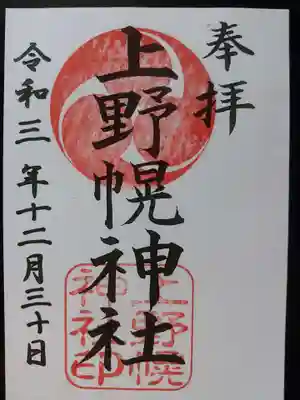 奉拝
上野幌神社
令和三年十二月三十日
上野幌
神社印